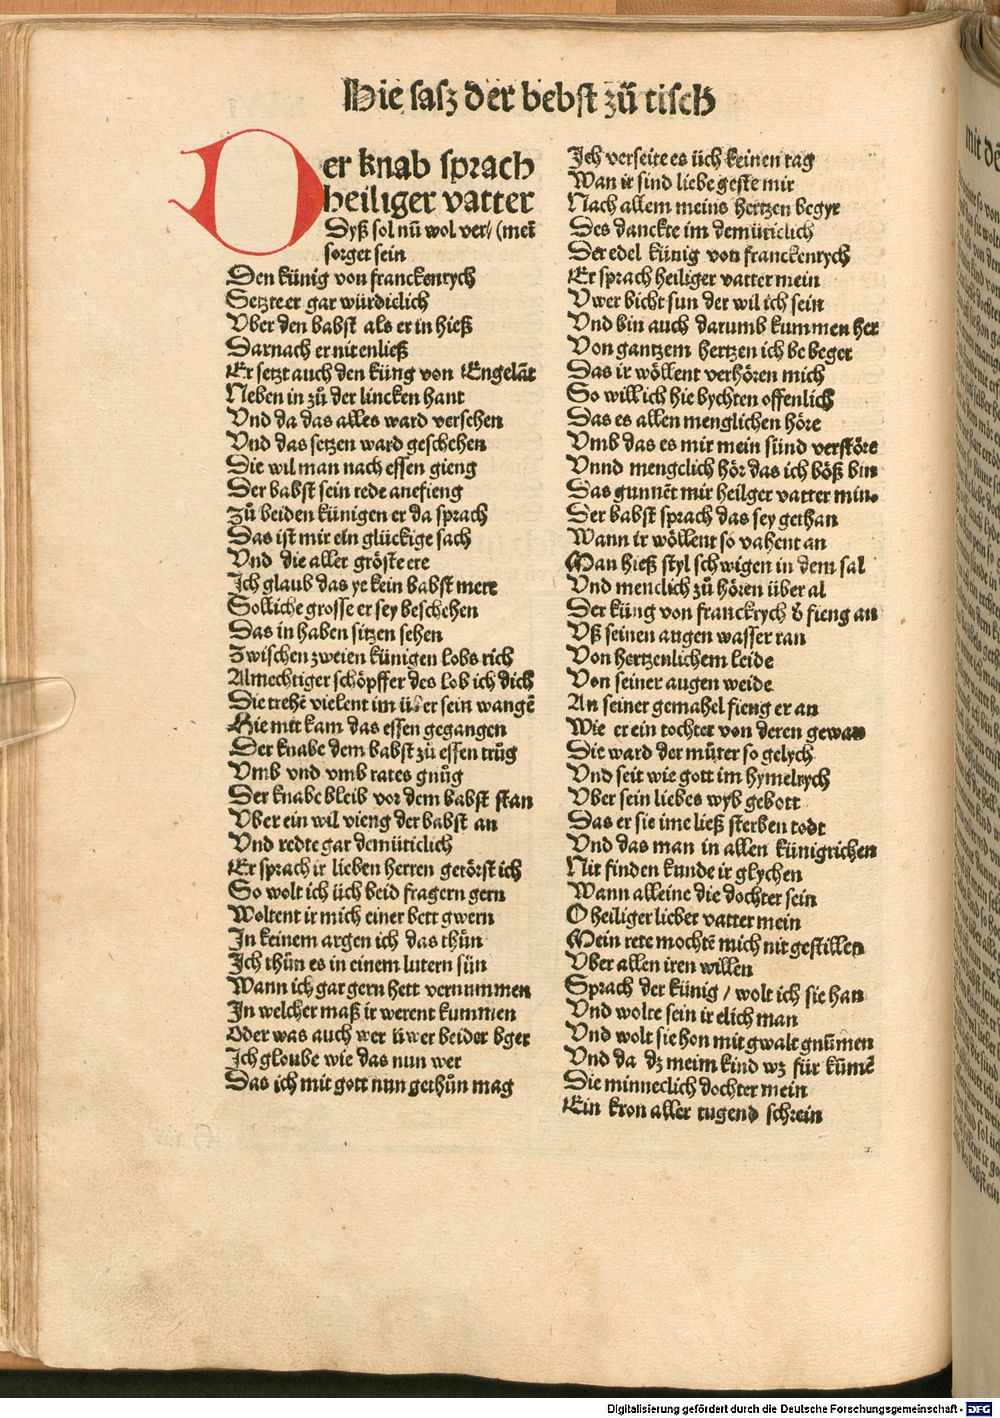 Hie sasz der bebst zů tisch
Der knab sprach
heiliger vatter
Dyß sol nů wol ver⸗ (mei
sorget sein
Den künig von franckenrych
Setzte er gar würdiclich
Vber den babst als er in hieß
Darnach er nit enließ
Er setzt auch den küng von Engelāt
Neben in zů der lincken hant
Vnd da das alles ward versehen
Vnd das setzen ward geschehen
Die wil man nach essen gieng
Der babst sein rede anefieng
Zů beiden künigen er da sprach
Das ist mir ein glückige sach
Vnd die aller gröste ere
Ich glaub das ye kein babst mere
Solliche grosse er sey beschehen
Das in haben sitzen sehen
Zwischen zweien künigen lobs rich
Almechtiger schöpffer des lob ich dich
Die trehē vielent im über sein wangē
Hie mit kam das essen gegangen
Der knabe dem babst zů essen trůg
Vmb vnd vmb rates gnůg
Der knabe bleib vor dem babst stan
Vber ein wil vieng der babst an
Vnd redte gar demüticlich
Er sprach ir lieben herren getörst ich
So wolt ich üch beid fragern gern
Woltent ir mich einer bett gwern
In keinem argen ich das thůn
Ich thůn es in einem lutern sün
Wann ich gar gern hett vernummen
In welcher maß ir werent kummen
Oder was auch wer üwer beider bger
Ich gloube wie das nun wer
Das ich mit gott nun gethůn mag
Ich verseite es üch keinen tag
Wan ir sind liebe geste mir
Nach allem meins hertzen begyr
Des danckte im demüticlich
Der edel künig von franckenrych
Er sprach heiliger vatter mein
Vwer bicht sun der wil ich sein
Vnd bin auch darumb kummen her
Von gantzem hertzen ich be beger
Das ir wöllent verhören mich
So will ich hie bychten offenlich
Das es allen menglichen höre
Vmb das es mir mein sünd verstöre
Vnnd mengclich hör das ich böß bin
Das gunnēt mir heilger vatter min.
Der babst sprach das sey gethan
Wann ir wöllent so vahent an
Man hieß styl schwigen in dem sal
Vnd menclich zů hören über al
Der küng von franckrych d fieng an
Vß seinen augen wasser ran
Von hertzenlichem leide
Von seiner augen weide
An seiner gemahel fieng er an
Wie er ein tochter von deren gewan
Die ward der můter so gelych
Vnd seit wie gott im hymelrych
Vber sein liebes wyb gebott
Das er sie ime ließ sterben todt
Vnd das man in allen künigrichen
Nit finden kunde ir glychen
Wann alleine die dochter sein
O heiliger lieber vatter mein
Mein rete mochtē mich nit gestillen
Vber allen iren willen
Sprach der künig / wolt ich sie han
Vnd wolte sein ir elich man
Vnd wolt sie hon mit gwalt gnūmen
Vnd da dz meim kind wz für kūmē
Die minneclich dochter mein
Ein kron aller tugend schrein
Digitalisierung gefördert durch die Deutsche Forschungsgemeinschaft - DFG